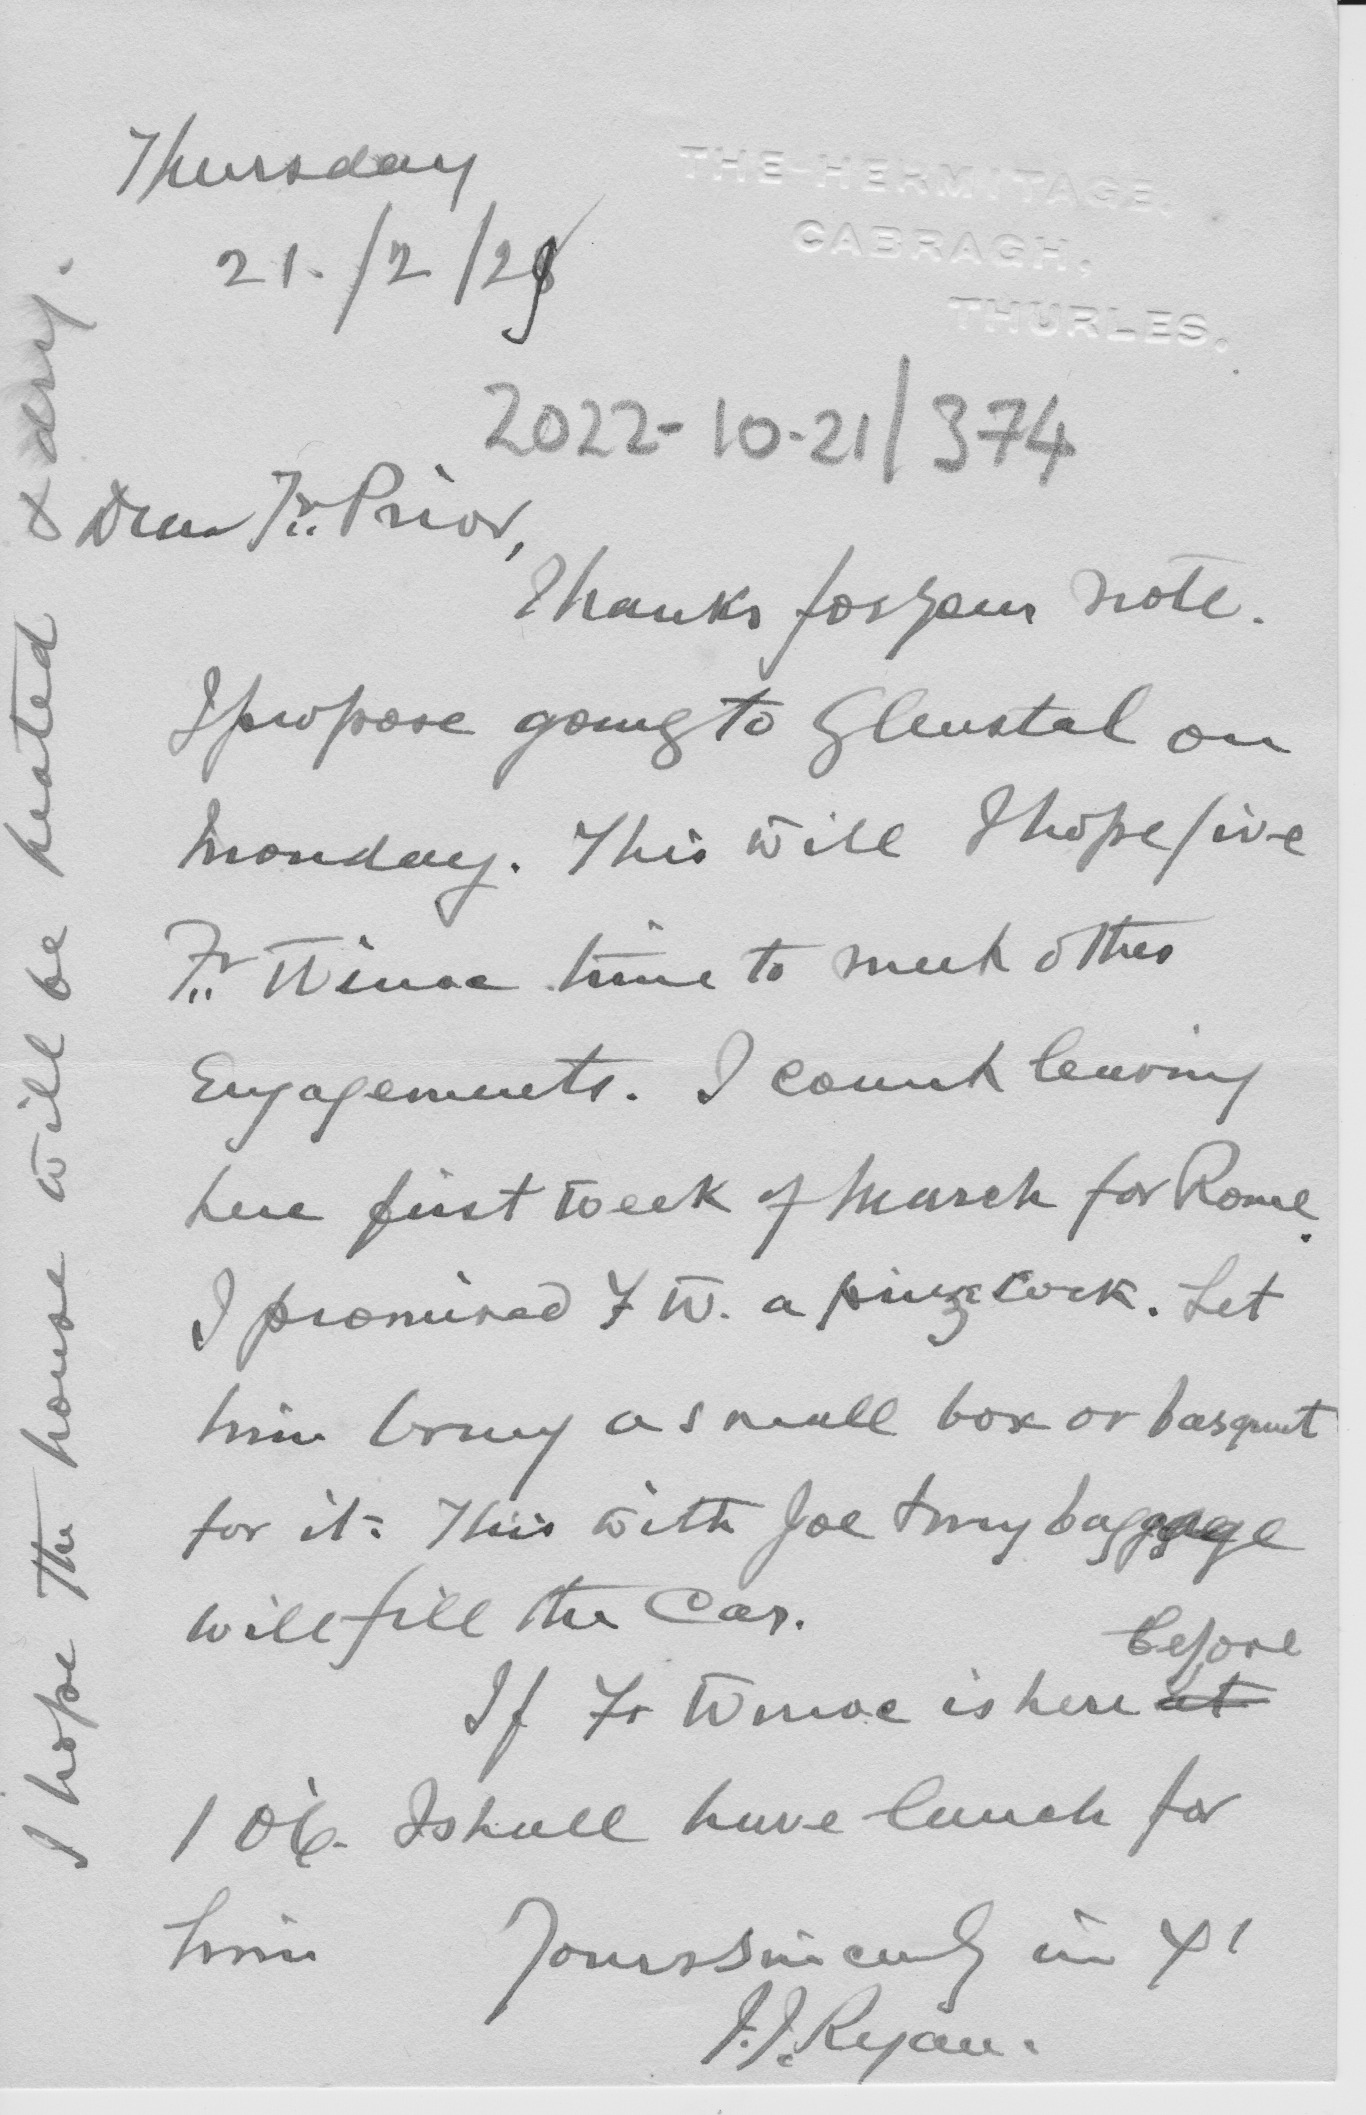 Thursday
21./2/29
THE HERMITAGE,
CABRAGH,
THURLES.
2022-10-21/374
Dear Fr. Prior,
Thanks for your note.
I propose going to Glenstal on
Monday. This will I hope give
Fr. Winoc time to meet other
Engagements. I count leaving
here first week of March for Rome.
I promised F W. a cock. Let
him bring a small box or basquet
for it. This with Joe & my baggage
will fill the Car.
If Fr Winoc is here at before
1 O'C. I shall have lunch for
him
Yours sincerely in X'
J.J. Ryan.
I hope the house will be heated & dry.